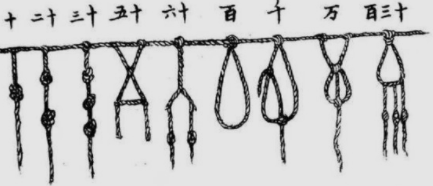 十 二十 三十 五十 六十 百 千 万 百三十